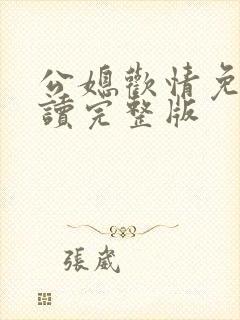 公媳歡情免
讀完整版
張崴